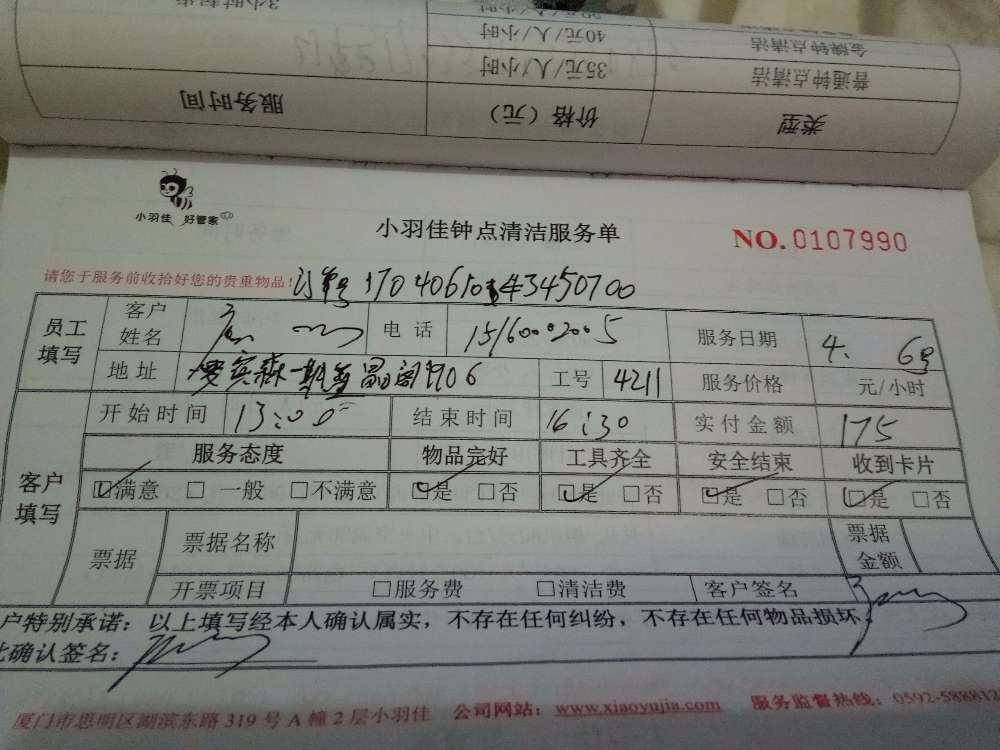 类型 价格（元） 服务时间
普通钟点清洁 35元/人/小时
金牌钟点清洁 40元/人/小时 3小时起
小羽佳 好管家
小羽佳钟点清洁服务单
NO.0107990
请您于服务前收拾好您的贵重物品!
订单号
员工填写 客户姓名 电话 服务日期 4. 6号
地址 906 工号 4211 服务价格 元/小时
客户填写 开始时间 13:00 结束时间 16:30 实付金额 175
服务态度 物品完好 工具齐全 安全结束 收到卡片
☑满意 □一般 □不满意 ☑是 □否 ☑是 □否 ☑是 □否 ☑是 □否
票据 票据名称 票据金额
开票项目 □服务费 □清洁费 客户签名
户特别承诺：以上填写经本人确认属实，不存在任何纠纷，不存在任何物品损坏，
此确认签名：
厦门市思明区湖滨东路319号A幢2层小羽佳 公司网站：www.xiaoyujia.com 服务监督热线：0592-588812